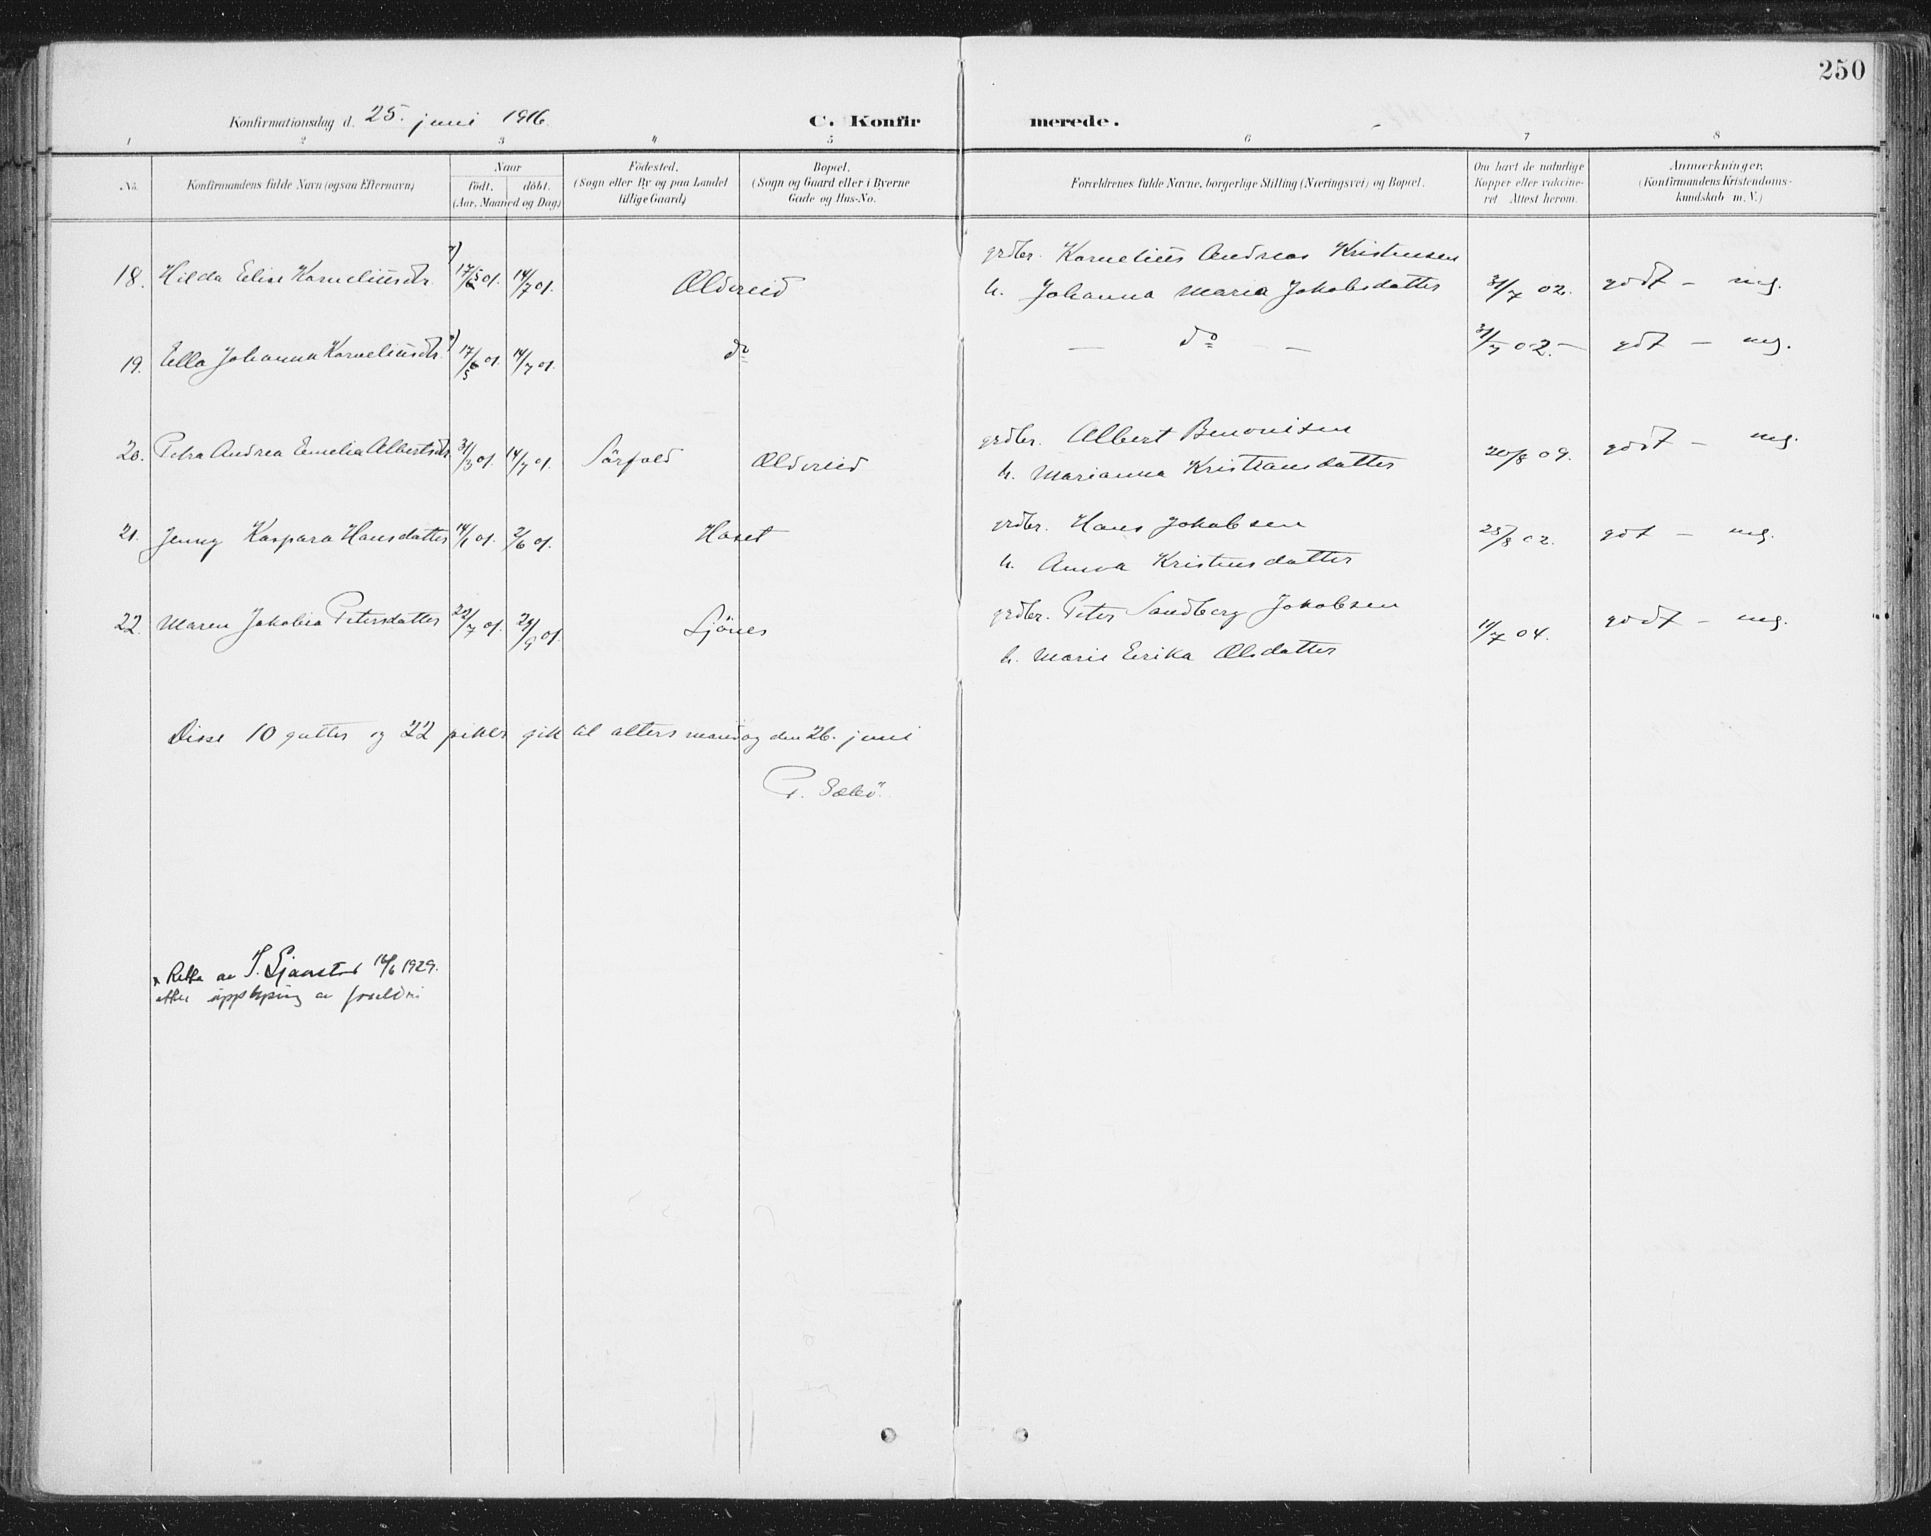 250
Konfirmationsdag d. 25. juni 1916.
C. Konfirmerede.
1 2 3 4 5 6 7 8
No.
Konfirmandens fulde Navn (ogsaa Efternavn)
Naar
födt. döbt.
(Aar, Maaned og Dag)
Födested.
(Sogn eller By og paa Landet
tillige Gaard)
Bopæl.
(Sogn og Gaard eller i Byerne
Gade og Hus-No.
Forældrenes fulde Navne, borgerlige Stilling (Næringsvei) og Bopæl.
Om havt de naturlige
Kopper eller vakcine-
ret Attest herom.
Anmærkninger,
(Konfirmandens Kristendoms-
kundskab m. V.)
18. Hilda Elise Korneliusdtr. 17/5 01. 14/7 01. Oldereid grdbr. Kornelius Andreas Kristensen
h. Johanna Maria Jakobsdatter 31/7 02. godt - mg.
19. Ella Johanna Korneliusdtr. 17/5 01. 14/7 01. do — do — 31/7 02. — godt - mg.
20. Petra Andrea Emelia Albertsdtr. 31/3 01. 14/7 01. Sörfold Oldereid grdbr. Albert Benonisen
h. Marianna Kristiansdatter 20/8 09. godt - mg.
21. Jenny Kaspara Hansdatter 14/1 01. 2/6 01. Hoset grdbr. Hans Jakobsen
h. Anna Kristensdatter 28/8 02. godt - mg.
22. Maren Jakobea Petersdatter 20/7 01. 29/9 01. Sjönes grdbr. Peter Sandberg Jakobsen
h. Marie Erika Olsdatter 11/7 04. godt - mg.
Disse 10 gutter og 22 piker gik til alters mandag den 26. juni
P. Sæbö.
x Retta av 16/6 1929.
etter upplysing av foreldri